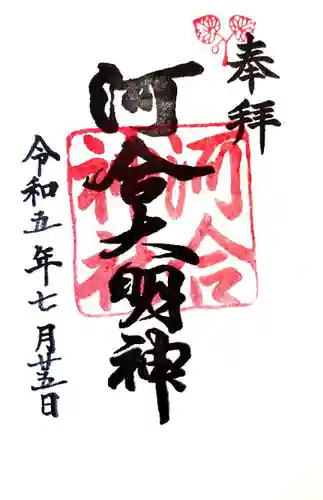 奉拝
河合大明神
河合神社
令和五年七月廿五日